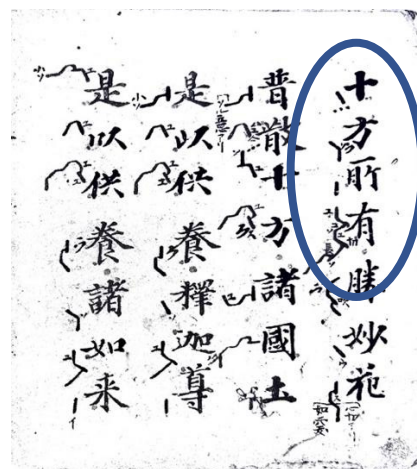 十方所有勝妙花
普散十方諸國土
是以供養釋迦尊
是以供養諸如来